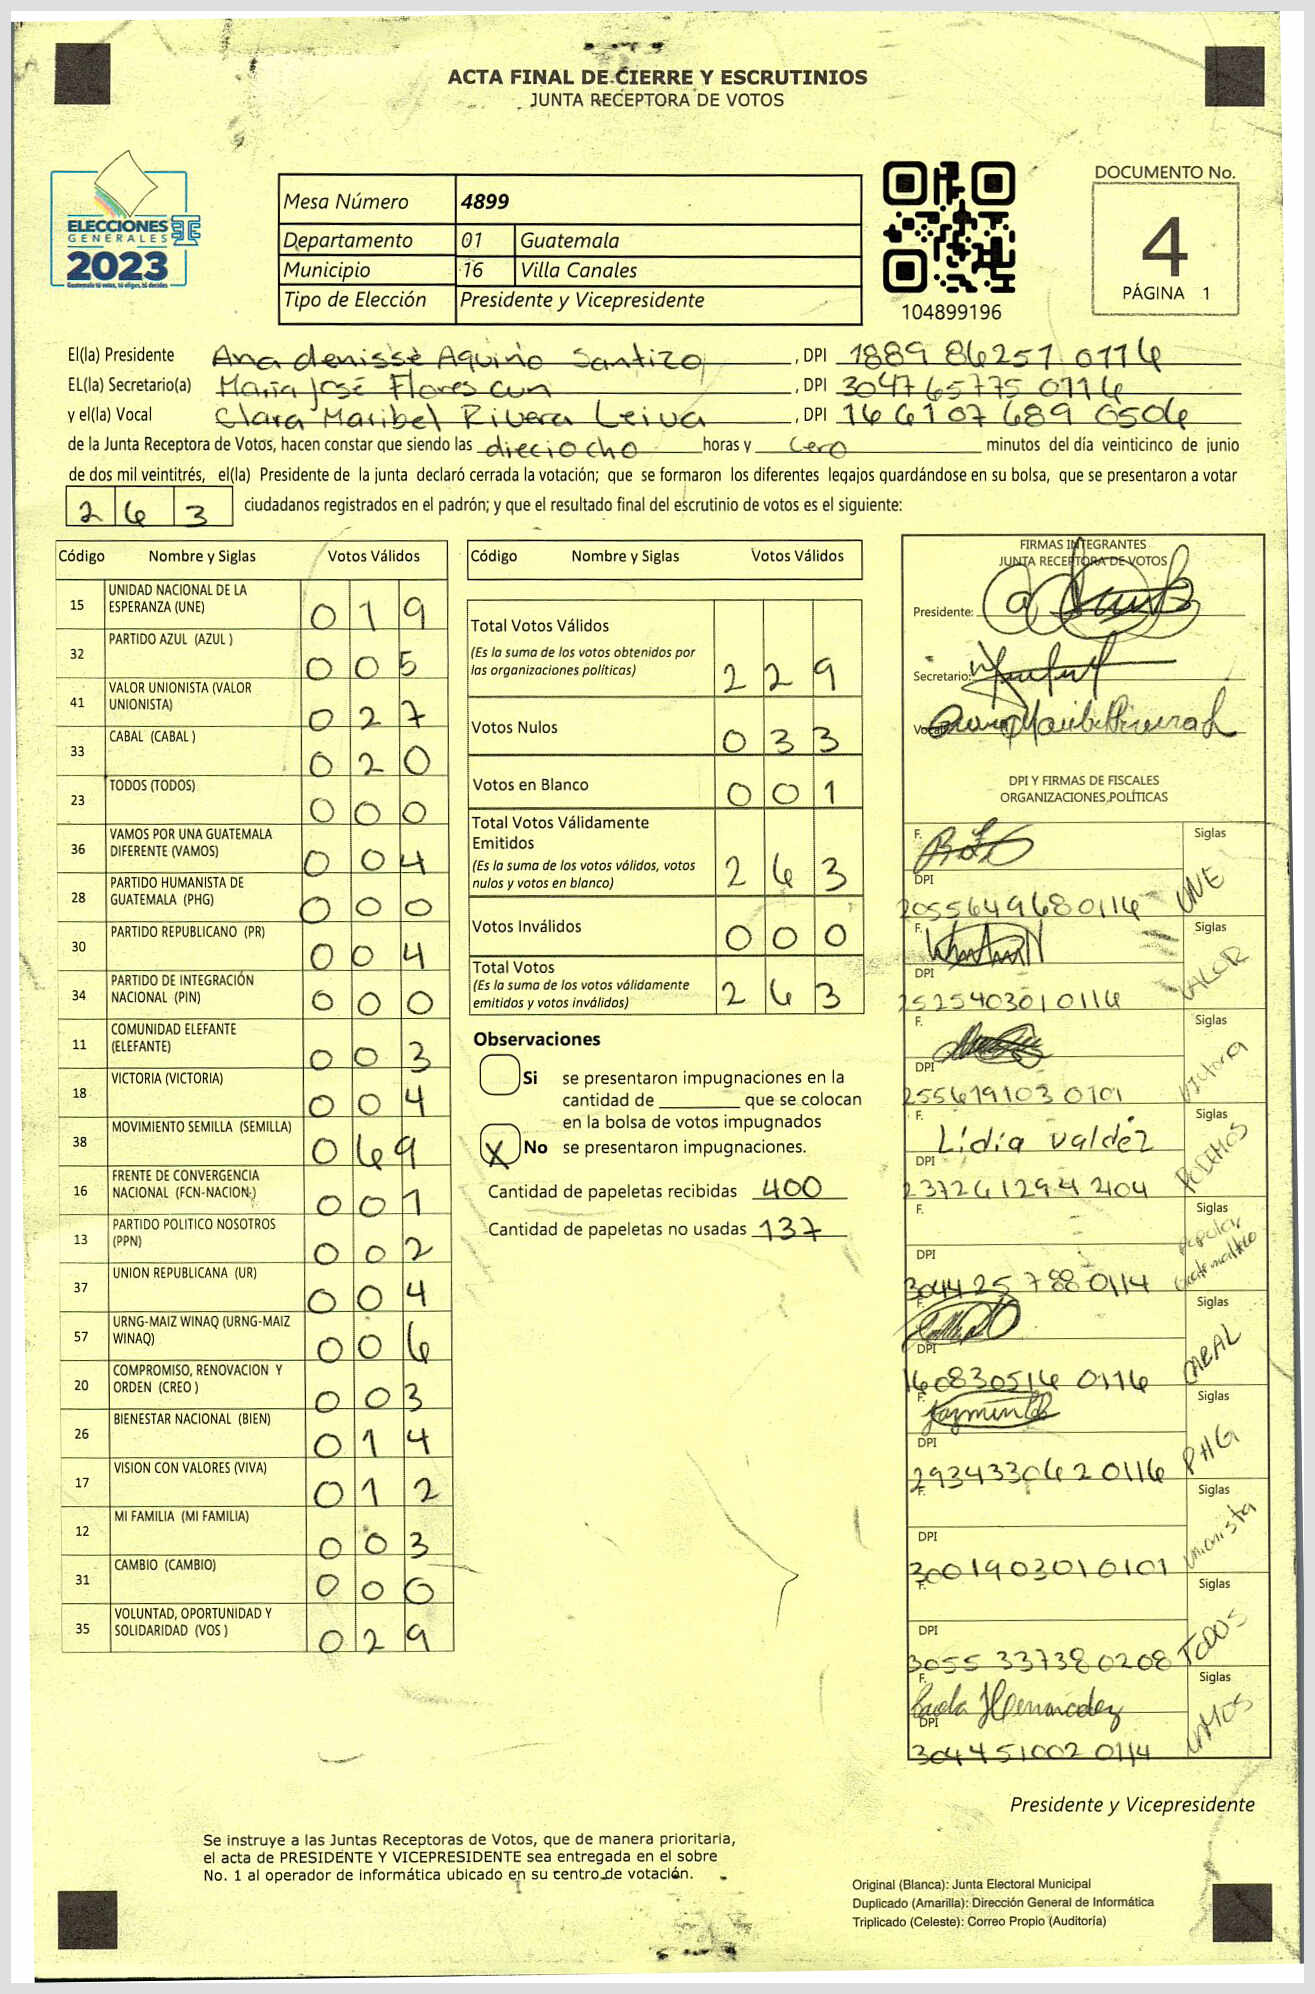 ACTA FINAL DE CIERRE Y ESCRUTINIOS
JUNTA RECEPTORA DE VOTOS
ELECCIONES
GENERALES
2023
Guatemala tú votas, tú eliges, tú decides
Mesa Número 4899
Departamento 01 Guatemala
Municipio 16 Villa Canales
Tipo de Elección Presidente y Vicepresidente
104899196
DOCUMENTO No.
4
PÁGINA 1
El(la) Presidente Ana denisse Aquino Santizo, DPI 1889 86251 0116
EL(la) Secretario(a) María José Flores cun, DPI 3047 65775 0116
y el(la) Vocal Clara Maribel Rivera Leiva, DPI 1661 07689 0506
de la Junta Receptora de Votos, hacen constar que siendo las dieciocho horas y cero minutos del día veinticinco de junio
de dos mil veintitrés, el(la) Presidente de la junta declaró cerrada la votación; que se formaron los diferentes legajos quardándose en su bolsa, que se presentaron a votar
263 ciudadanos registrados en el padrón; y que el resultado final del escrutinio de votos es el siguiente:
Código Nombre y Siglas Votos Válidos
15 UNIDAD NACIONAL DE LA ESPERANZA (UNE) 019
32 PARTIDO AZUL (AZUL ) 005
41 VALOR UNIONISTA (VALOR UNIONISTA) 027
33 CABAL (CABAL ) 020
23 TODOS (TODOS) 000
36 VAMOS POR UNA GUATEMALA DIFERENTE (VAMOS) 004
28 PARTIDO HUMANISTA DE GUATEMALA (PHG) 000
30 PARTIDO REPUBLICANO (PR) 004
34 PARTIDO DE INTEGRACIÓN NACIONAL (PIN) 000
11 COMUNIDAD ELEFANTE (ELEFANTE) 003
18 VICTORIA (VICTORIA) 004
38 MOVIMIENTO SEMILLA (SEMILLA) 069
16 FRENTE DE CONVERGENCIA NACIONAL (FCN-NACION) 001
13 PARTIDO POLITICO NOSOTROS (PPN) 002
37 UNION REPUBLICANA (UR) 004
57 URNG-MAIZ WINAQ (URNG-MAIZ WINAQ) 006
20 COMPROMISO, RENOVACION Y ORDEN (CREO ) 003
26 BIENESTAR NACIONAL (BIEN) 014
17 VISION CON VALORES (VIVA) 012
12 MI FAMILIA (MI FAMILIA) 003
31 CAMBIO (CAMBIO) 000
35 VOLUNTAD, OPORTUNIDAD Y SOLIDARIDAD (VOS ) 029
Código Nombre y Siglas Votos Válidos
Total Votos Válidos
(Es la suma de los votos obtenidos por
las organizaciones políticas) 229
Votos Nulos 033
Votos en Blanco 001
Total Votos Válidamente
Emitidos
(Es la suma de los votos válidos, votos
nulos y votos en blanco) 263
Votos Inválidos 000
Total Votos
(Es la suma de los votos válidamente
emitidos y votos inválidos) 263
Observaciones
Si se presentaron impugnaciones en la
cantidad de ________ que se colocan
en la bolsa de votos impugnados
X No se presentaron impugnaciones.
Cantidad de papeletas recibidas 400
Cantidad de papeletas no usadas 137
FIRMAS INTEGRANTES
JUNTA RECEPTORA DE VOTOS
Presidente:
Secretario:
Vocal:
DPI Y FIRMAS DE FISCALES
ORGANIZACIONES POLÍTICAS
F. Siglas
DPI
2055649680116 UNE
F. Siglas
DPI
2525403010116 VALOR
F. Siglas
DPI
2556191030101 Victoria
F. Lidia Valdéz Siglas
DPI
2372612942104 PODEMOS
F. Siglas
DPI Popular Guatemalteco
3044257880114
F. Siglas
DPI
1608305160116 CABAL
F. Siglas
DPI
2934330620116 PHG
F. Siglas
DPI
3001903010101 unionista
F. Siglas
DPI
3055337380208 TODOS
F. Paola Hernandez Siglas
DPI
3044510020114 VAMOS
Presidente y Vicepresidente
Se instruye a las Juntas Receptoras de Votos, que de manera prioritaria,
el acta de PRESIDENTE Y VICEPRESIDENTE sea entregada en el sobre
No. 1 al operador de informática ubicado en su centro de votación.
Original (Blanca): Junta Electoral Municipal
Duplicado (Amarilla): Dirección General de Informática
Triplicado (Celeste): Correo Propio (Auditoría)